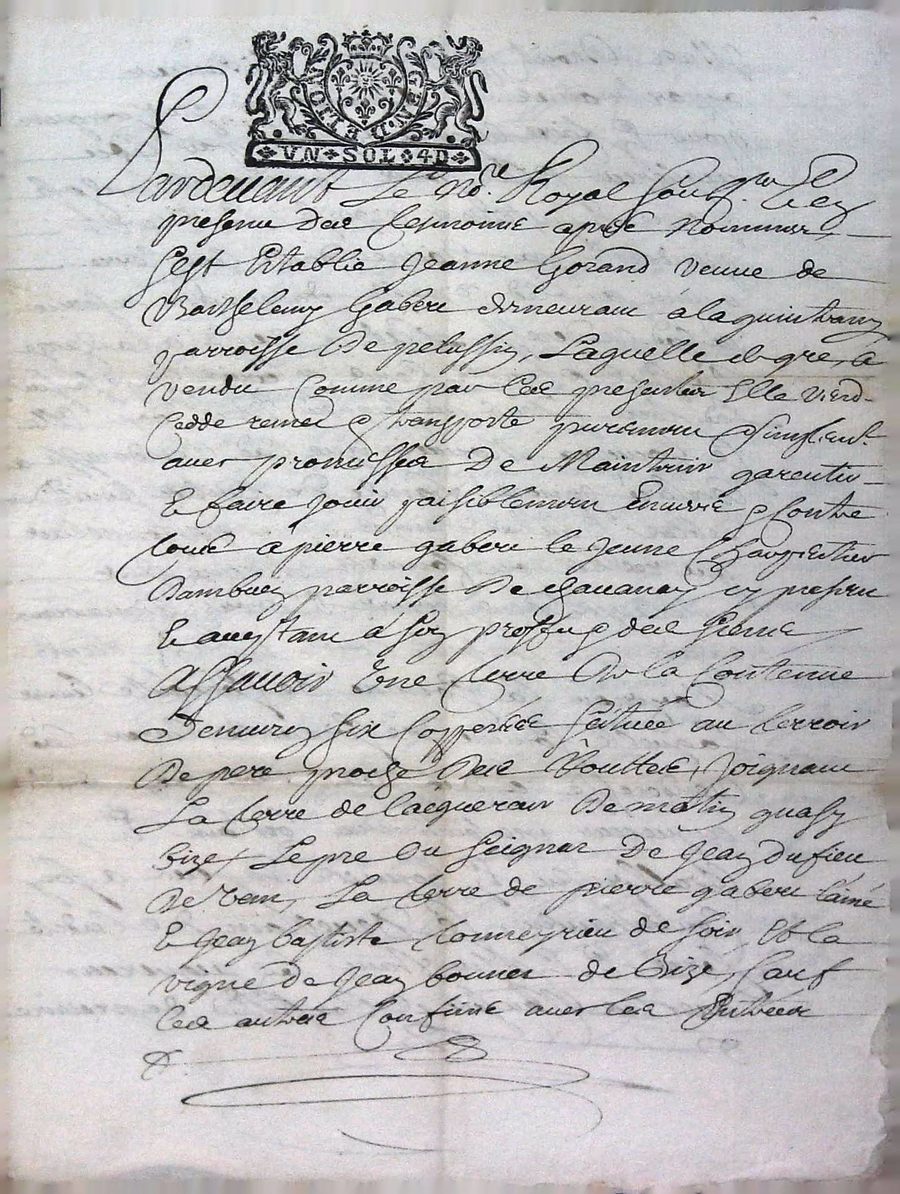 GEN. DE LION
VN SOL 4D
Pardevant Le no.re Royal Soub.né Et en
presence des tesmoins apres nommes
Sest Establie Jeanne Gorand veuve de
Barthelemy Gaberi demeurant à la
parroisse De pelussin, Laquelle de gre, a
vendu Comme par Ces presentes Elle vend
Cedde remet & transporte purement & simplemt.
avec promesses De Maintenir garentir
Et faire Jouir paisiblement Envers & Contre
tous a pierre gaberi le Jeune Charpentier
Dambuez parroisse De Chavanay cy present
Et acceptant à Son proffit & des Siens
Assavoir Une terre De la Contenue
Denviron Six Copperées Scituée au terroir
De pere proche des voutes, Joignant
La terre de lacquereur De matin quasy
bize, Le pre du Seigneur De Jean Dufieu
De vent, La terre de pierre gaberi l'ainé
Et Jean baptiste de Soir Et la
vigne de Jean bonnet de Bize, Sauf
Les autres Confins avec Les Entrees